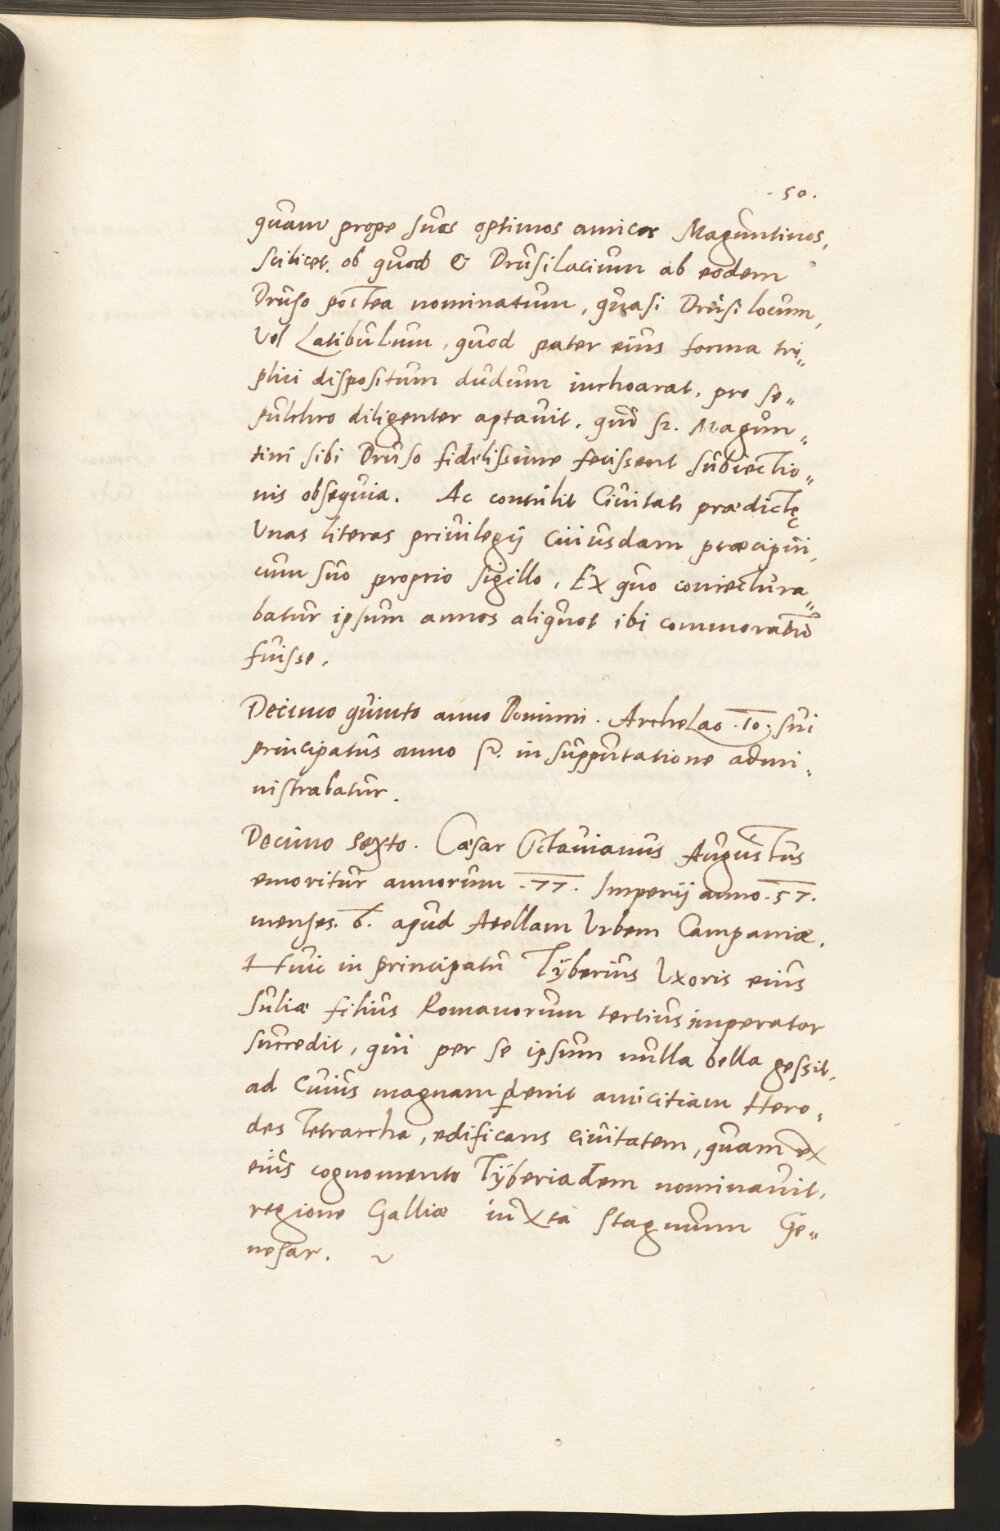 . 50 .
quam prope suos optimos amicos Maguntinos,
scilicet, ob quod & Drusilacium ab eodem
Druso postea nominatum, quasi Drusi locum,
vel Latibulum, quod pater eius forma tri„
plici dispositum dudum inchoarat, pro se„
pulchro diligenter aptavit, quod sz. Magun„
tini sibi Druso fidelissime fecissent subiectio„
nis obsequia. Ac contulit Civitati prædictę
Unas literas privilegij cuiusdam præcipui,
cum suo proprio sigillo, Ex quo coniectura„
batur ipsum annos aliquot ibi commoratū
fuisse.
Decimo quinto anno Domini. Archelao .10. sui
principatus anno sz. in supputatione admi„
nistrabatur.
Decimo sexto. Cæsar Octavianus Augustus
emoritur annorum .77. Imperij anno .57.
menses. 6. apud Atellam Urbem Campaniæ.
Huic in principatu Tÿberius Uxoris eius
Juliæ filius Romanorum tertius imperator
succedit, qui per se ipsum nulla bella gessit,
ad Cuius magnam p̲venit amicitiam Hero„
des Tetrarcha, edificans civitatem, quam ex
eius cognomento Tÿberiadem nominavit,
regione Galliæ iuxta stagnum Ge„
nesar. ~